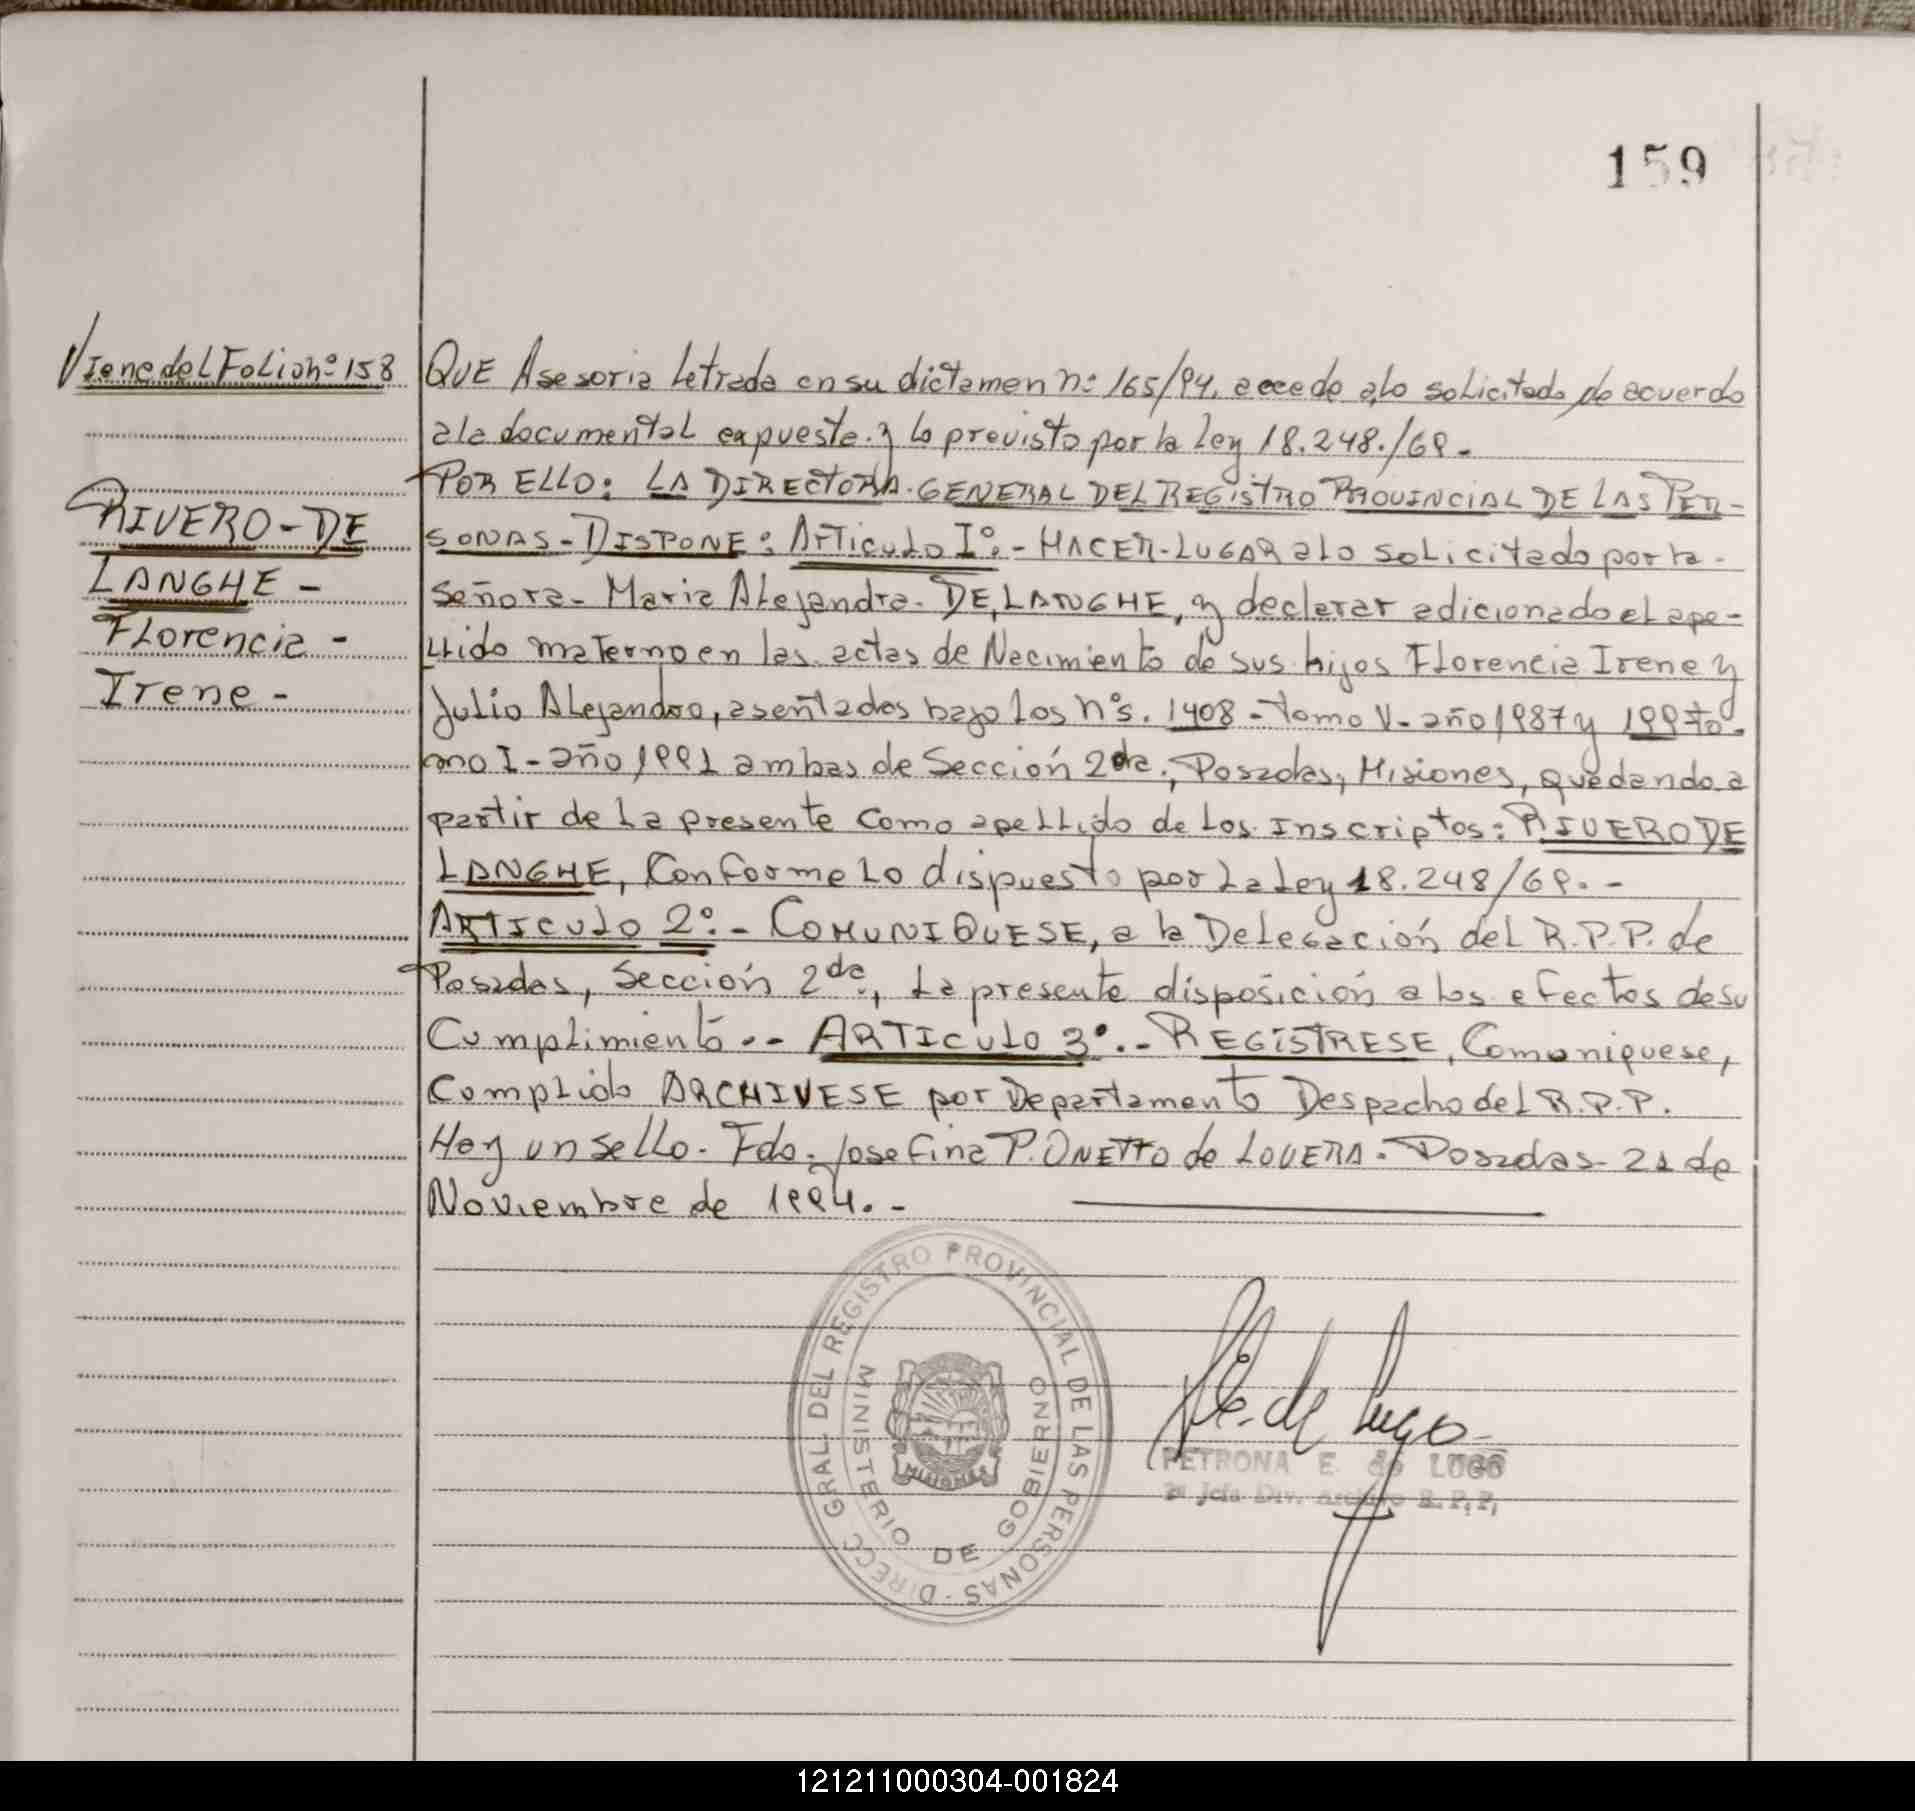 159
Viene del Folio nº 158
RIVERO-DE
LANGHE -
Florencia -
Irene -
QUE Asesoria Letrada en su dictamen nº 165/94, accede a lo solicitado de acuerdo
a la documental expuesta y lo previsto por la Ley 18.248./69.
POR ELLO: LA DIRECTORA GENERAL DEL REGISTRO PROVINCIAL DE LAS PER-
SONAS - DISPONE: ARTICULO Iº.- HACER-LUGAR a lo solicitado por la -
Señora - Maria Alejandra - DE LANGHE, y declarar adicionado el ape-
llido materno en las actas de Nacimiento de sus hijos Florencia Irene y
Julio Alejandro, asentados bajo los nºs. 1408 - tomo V - año 1987 y 199 to-
mo I - año 1991 ambas de Sección 2da., Posadas, Misiones, quedando a
partir de la presente como apellido de los Inscriptos: RIVERO DE
LANGHE, Conforme lo dispuesto por la Ley 18.248/69. -
ARTICULO 2º.- COMUNIQUESE, a la Delegación del R.P.P. de
Posadas, Sección 2da., la presente disposición a los efectos de su
Cumplimiento.- - ARTICULO 3º.- REGISTRESE, Comuniquese,
Cumplido ARCHIVESE por Departamento Despacho del R.P.P.
Hay un sello. Fdo. Josefina P. ONETTO de LOVERA. Posadas 21 de
Noviembre de 1994. -
DIRECC GRAL. DEL REGISTRO PROVINCIAL DE LAS PERSONAS
MINISTERIO DE GOBIERNO
MISIONES
E. de Lugo
PETRONA E. de LUGO
Jefa Div. Archivo R.P.P.
121211000304-001824